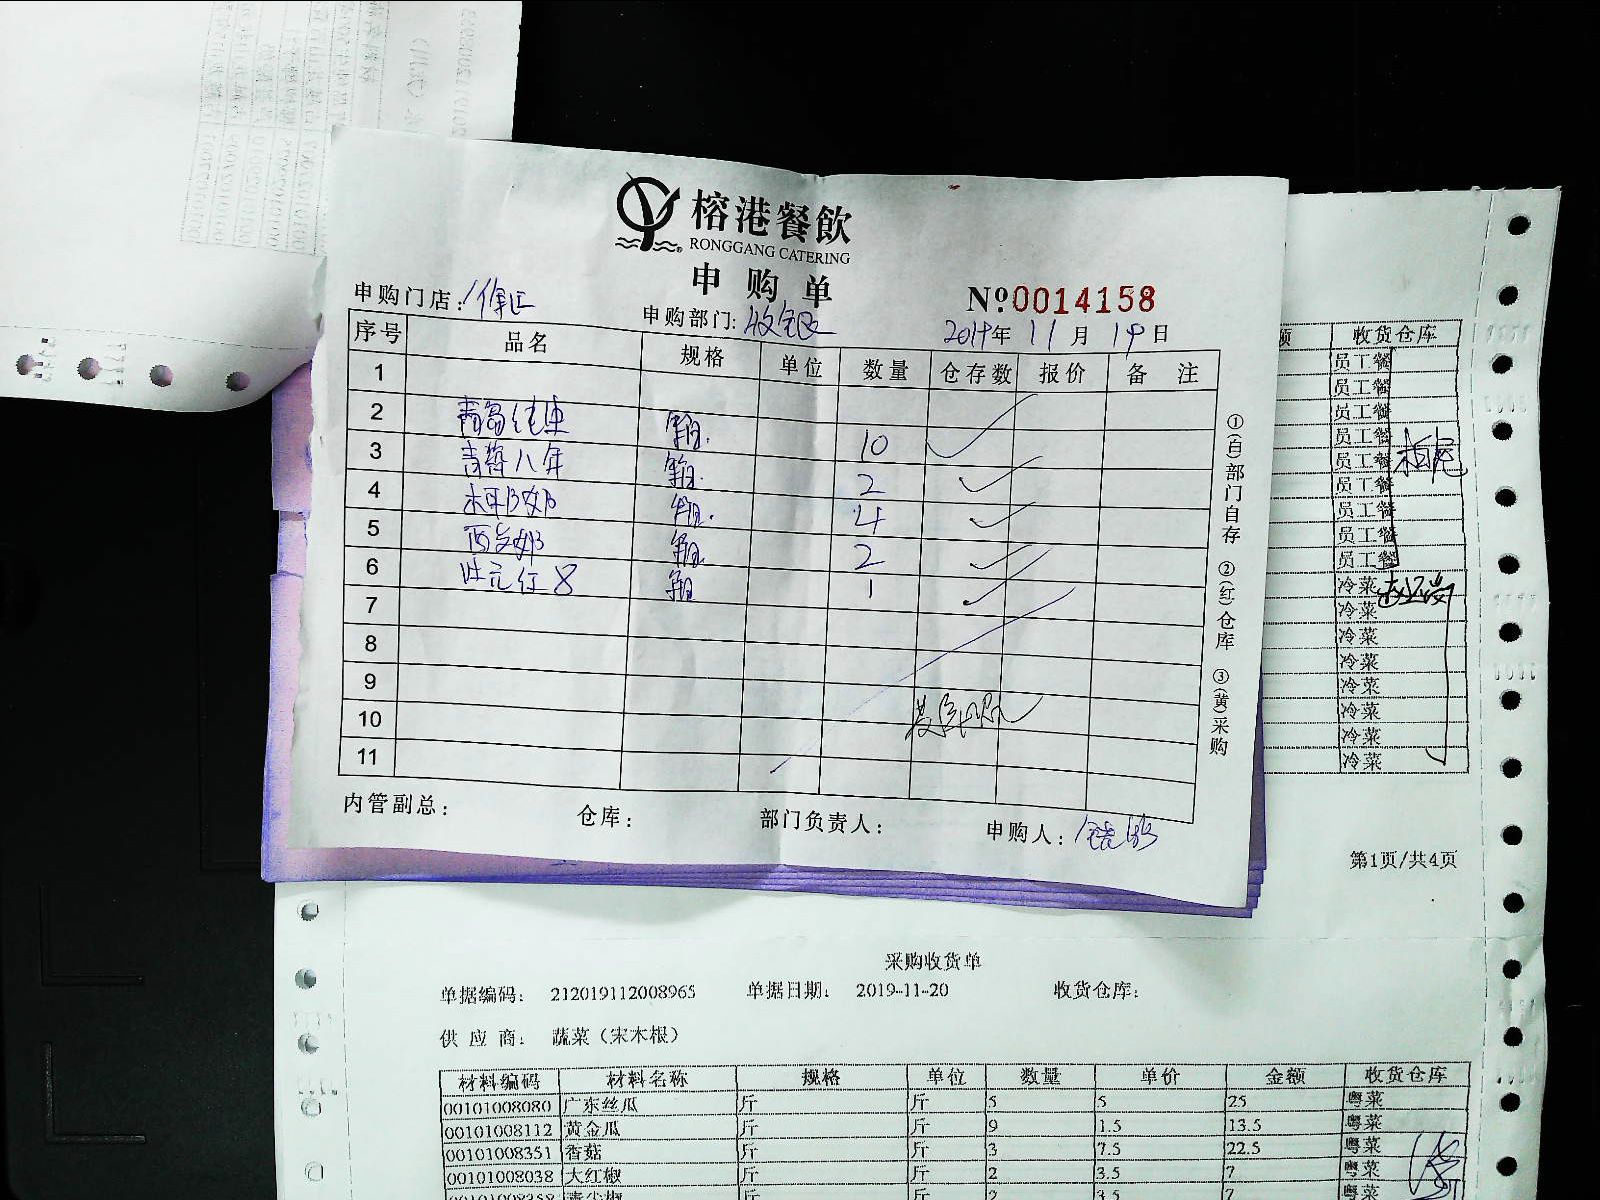 榕港餐飲
RONGGANG CATERING
申购单
№0014158
申购门店：徐汇
申购部门：收银
2019年11月19日
序号 品名 规格 单位 数量 仓存数 报价 备注
1
2 青岛纯生 箱. 10
3 青尊八年 箱. 2
4 椰奶 箱. 4
5 箱. 2
6 8 箱 1
7
8
9
10
11
内管副总： 仓库： 部门负责人： 申购人：
①(白)部门自存 ②(红)仓库 ③(黄)采购
额 收货仓库
员工餐
员工餐
员工餐
员工餐
员工餐
员工餐
员工餐
员工餐
员工餐
冷菜
冷菜
冷菜
冷菜
冷菜
冷菜
冷菜
冷菜
第1页/共4页
采购收货单
单据编码： 212019112008965 单据日期： 2019-11-20 收货仓库：
供应商： 蔬菜（宋木根）
材料编码 材料名称 规格 单位 数量 单价 金额 收货仓库
00101008080 广东丝瓜 斤 斤 5 5 25 粤菜
00101008112 黄金瓜 斤 斤 9 1.5 13.5 粤菜
00101008351 香菇 斤 斤 3 7.5 22.5 粤菜
00101008038 大红椒 斤 斤 2 3.5 7 粤菜
00101008358 青尖椒 斤 斤 2 3.5 7 粤菜